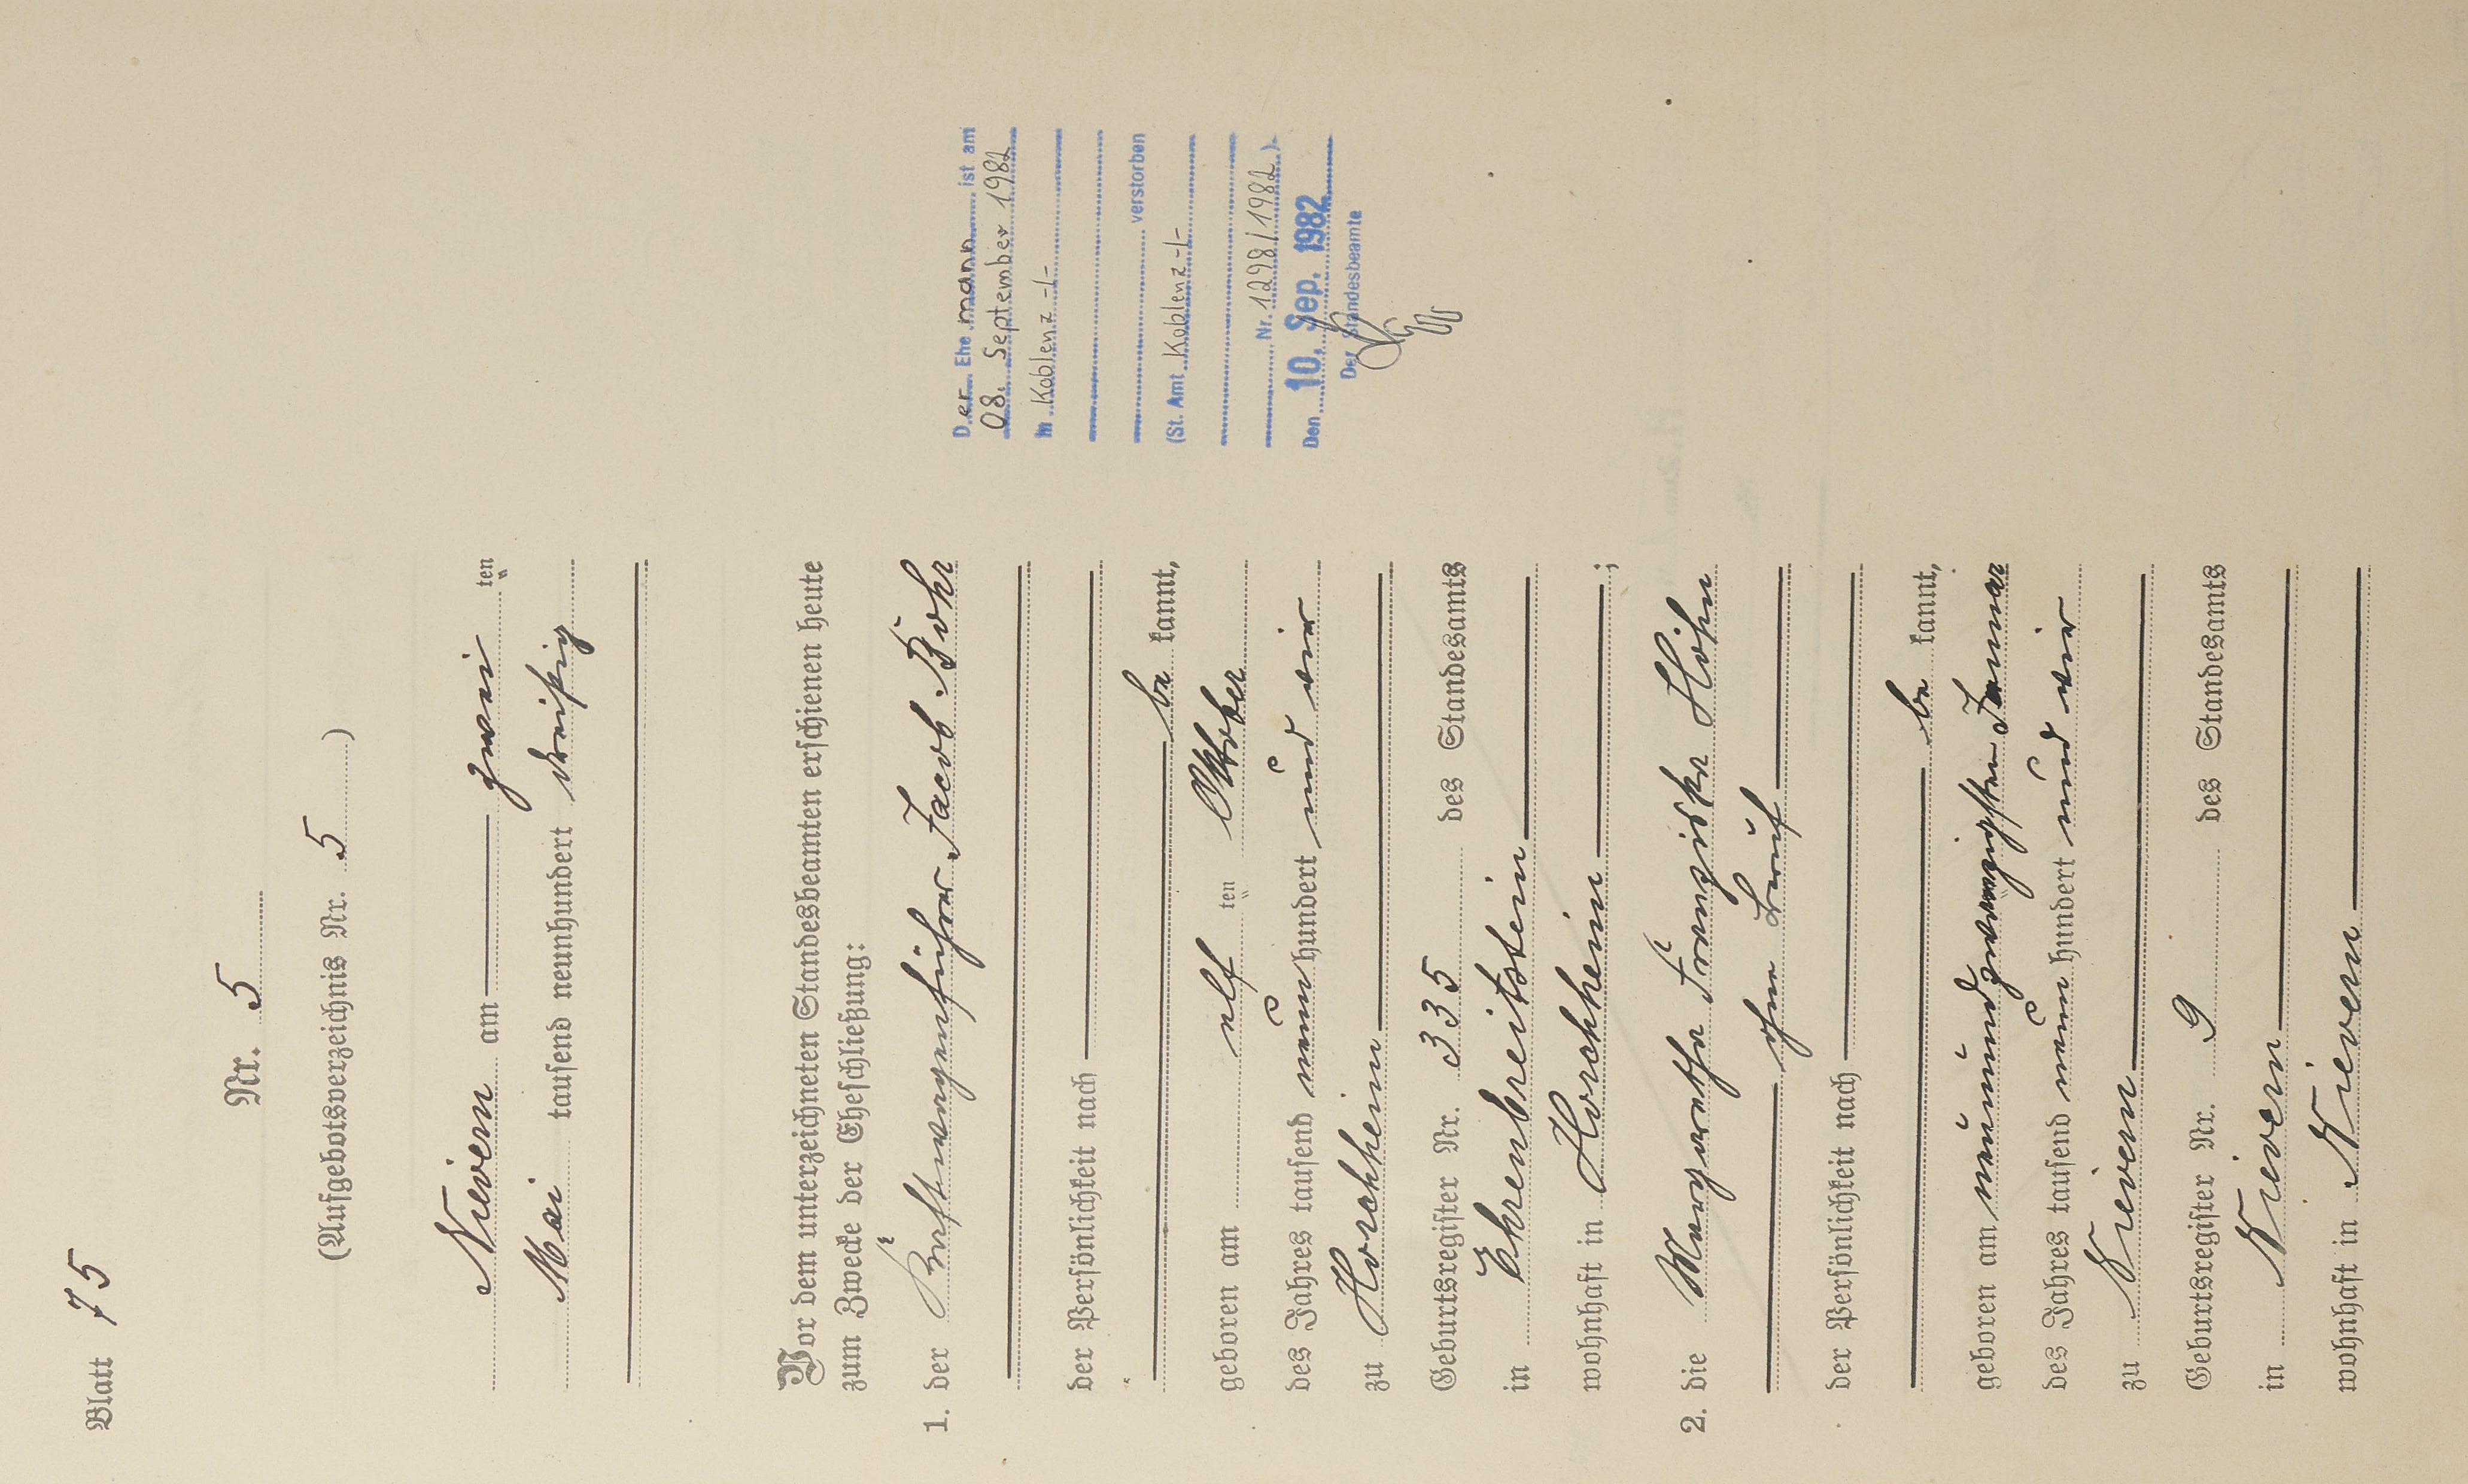 Blatt 75
Nr. 5
(Aufgebotsverzeichnis Nr. 5)
Nievern am zwei ten
Mai tausend neunhundert dreißig
Vor dem unterzeichneten Standesbeamten erschienen heute
zum Zwecke der Eheschließung:
1. der Kraftwagenführer Jacob Bohr
der Persönlichkeit nach
be kannt,
geboren am elf ten Oktober
des Jahres tausend neun hundert und vier
zu Horchheim
Geburtsregister Nr. 335 des Standesamts
in Ehrenbreitstein
wohnhaft in Horchheim;
2. die Margaretha Franziska Höhn
ohne Beruf
der Persönlichkeit nach
be kannt,
geboren am neunundzwanzigsten Januar
des Jahres tausend neun hundert und vier
zu Nievern
Geburtsregister Nr. 9 des Standesamts
in Nievern
wohnhaft in Nievern
Der Ehe mann ist am
08. September 1982
in Koblenz -1-
verstorben
(St. Amt Koblenz -1-
Nr. 1298/1982.)
Den 10. Sep. 1982
Der Standesbeamte